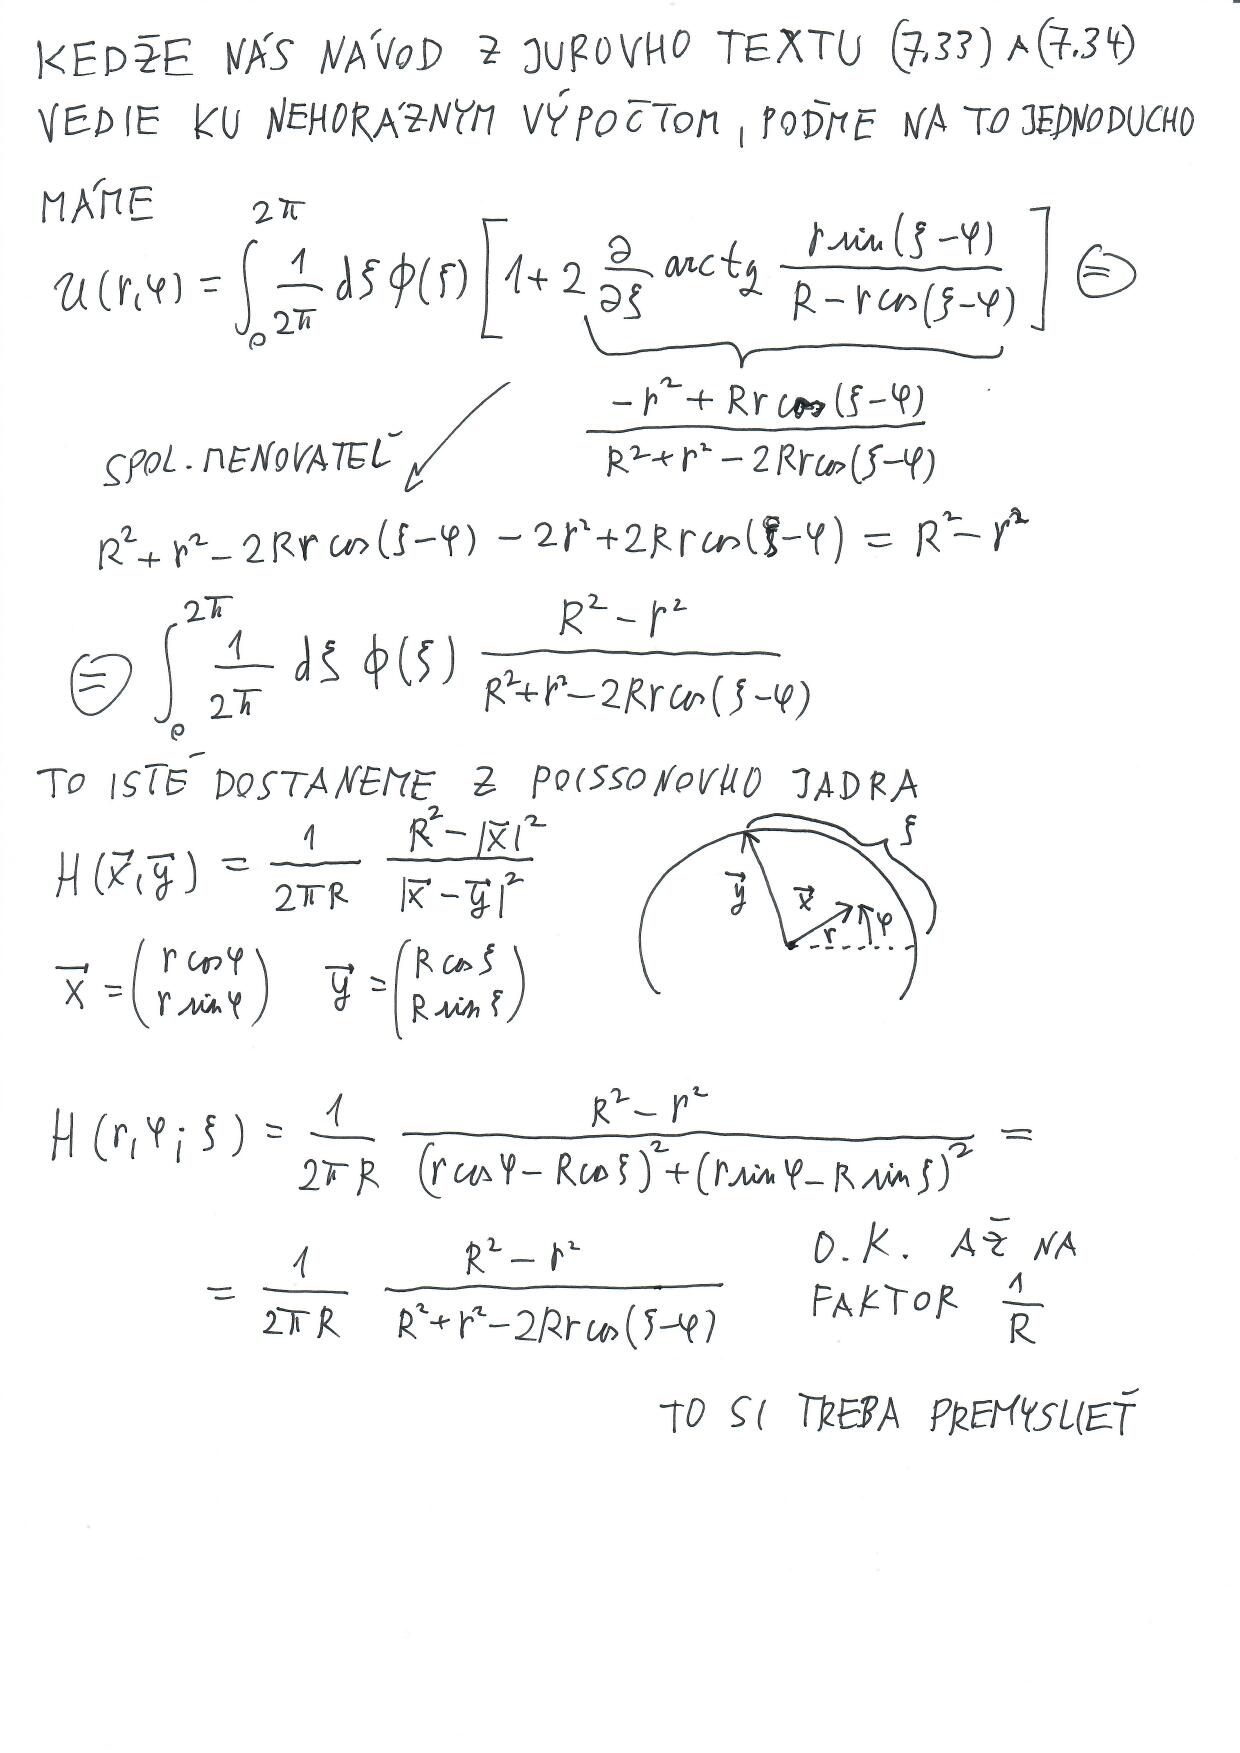 KEDŽE NÁS NÁVOD Z JUROVHO TEXTU (7.33) A (7.34)
VEDIE KU NEHORÁZNYM VÝPOČTOM, POĎME NA TO JEDNODUCHO
MÁME
u(r,φ) = ∫₀^{2π} 1/2π dξ ϕ(ξ) [1 + 2 ∂/∂ξ arctg (r sin(ξ-φ))/(R - r cos(ξ-φ))] (=)
(-r² + Rr cos(ξ-φ))/(R² + r² - 2Rr cos(ξ-φ))
SPOL. MENOVATEĽ
R² + r² - 2Rr cos(ξ-φ) - 2r² + 2Rr cos(ξ-φ) = R² - r²
(=) ∫₀^{2π} 1/2π dξ ϕ(ξ) (R² - r²)/(R² + r² - 2Rr cos(ξ-φ))
TO ISTÉ DOSTANEME Z POISSONOVHO JADRA
H(x⃗,y⃗) = 1/(2πR) (R² - |x⃗|²)/|x⃗ - y⃗|²
ξ
y⃗ x⃗ r φ
x⃗ = (r cosφ, r sinφ) y⃗ = (R cosξ, R sinξ)
H(r,φ;ξ) = 1/(2πR) (R² - r²)/((r cosφ - R cosξ)² + (r sinφ - R sinξ)²) =
= 1/(2πR) (R² - r²)/(R² + r² - 2Rr cos(ξ-φ))
O.K. AŽ NA
FAKTOR 1/R
TO SI TREBA PREMYSLIEŤ